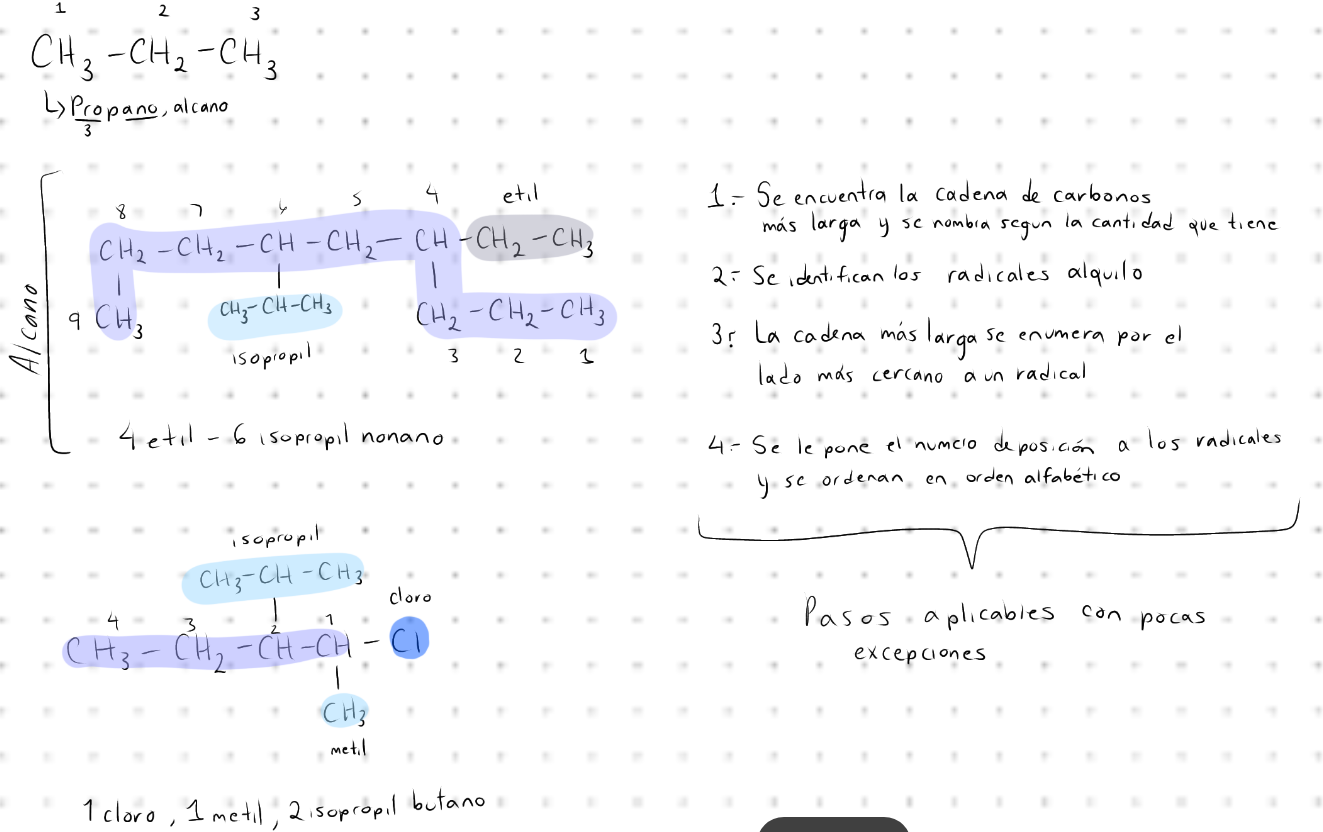 1 2 3
CH3 - CH2 - CH3
↳ Propano, alcano
3
Alcano
8 7 6 5 4 etil
CH2 - CH2 - CH - CH2 - CH - CH2 - CH3
9 CH3 CH3-CH-CH3 CH2 - CH2 - CH3
isopropil 3 2 1
4 etil - 6 isopropil nonano
isopropil
CH3-CH-CH3
cloro
4 3 2 1
CH3 - CH2 - CH - CH - Cl
CH3
metil
1 cloro, 1 metil, 2 isopropil butano
1.- Se encuentra la cadena de carbonos
más larga y se nombra segun la cantidad que tiene
2.- Se identifican los radicales alquilo
3.- La cadena más larga se enumera por el
lado más cercano a un radical
4.- Se le pone el numero de posición a los radicales
y se ordenan en orden alfabético
Pasos aplicables con pocas
excepciones